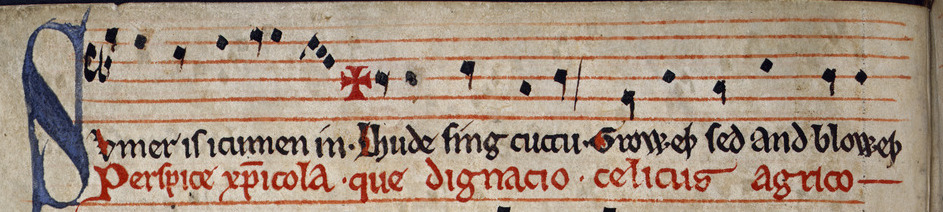 Svmer is icumen in. Lhude sing cuccu. Groweþ sed and bloweþ
Perspice xp̅icola · que dignacio · celicus agrico—